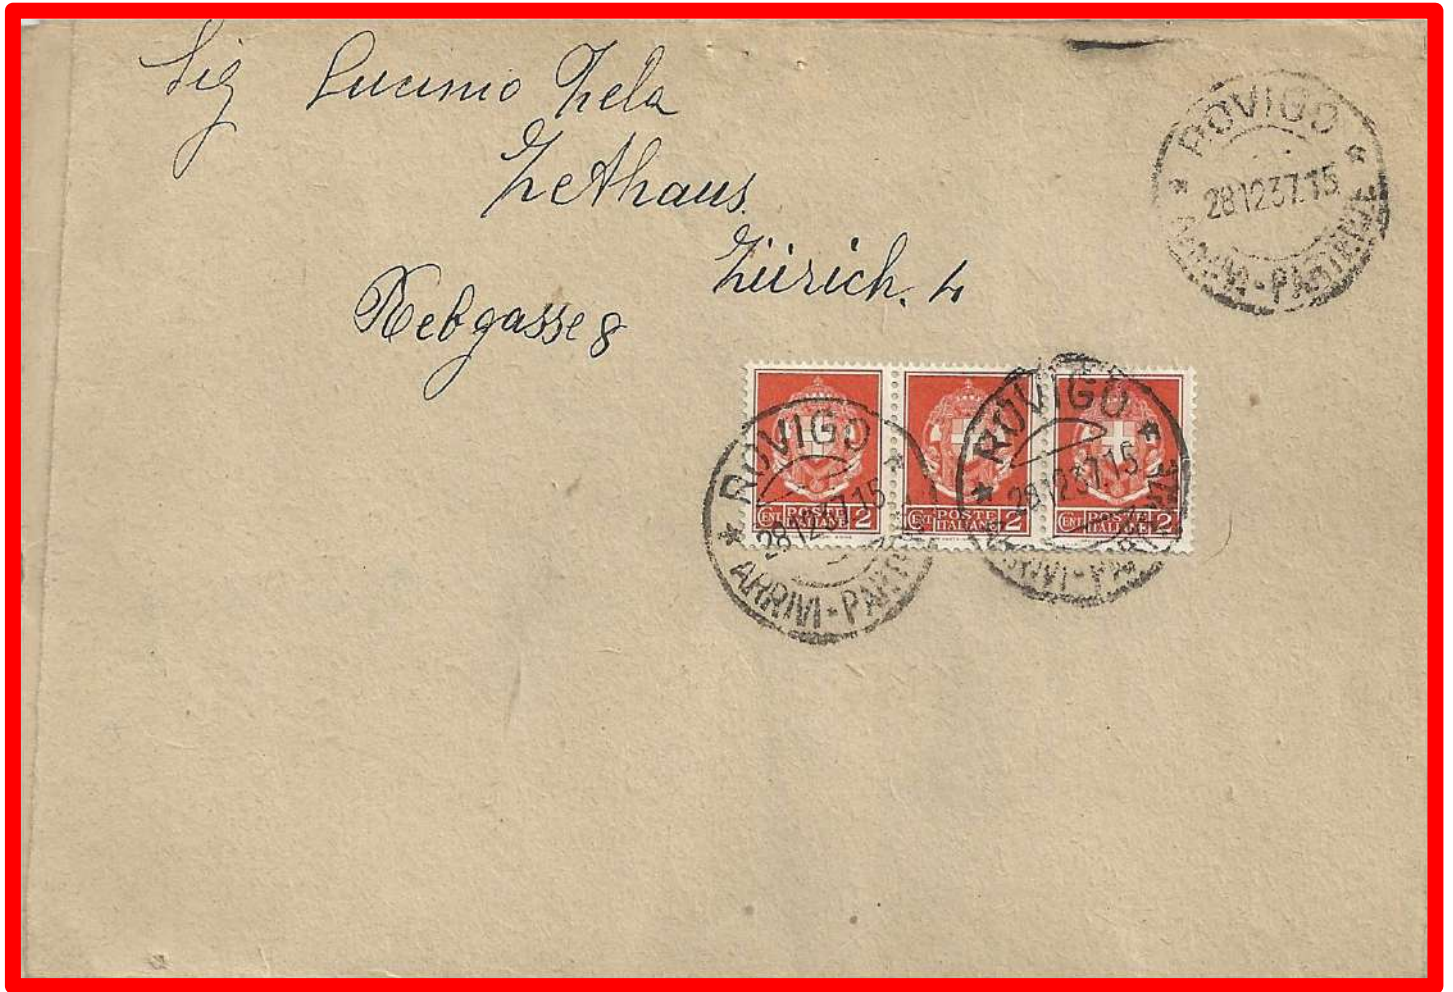 Sig Lucinio Zela
Zethaus.
Zürich. 4
Rebgasse 8
ROVIGO
28.12.37.15
ARRIVI-PARTENZE
CENT POSTE ITALIANE 2
CENT POSTE ITALIANE 2
CENT POSTE ITALIANE 2
ROVIGO
28.12.37.15
ARRIVI-PARTENZE
ROVIGO
28.12.37.15
ARRIVI-PARTENZE